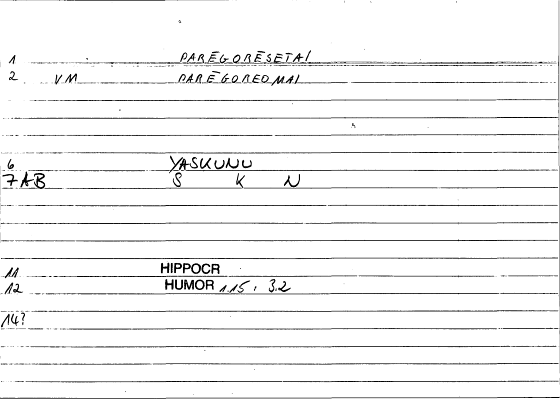 1 PARĒGORĒSETAI
2 VM PARĒGOREOMAI
6 YASKUNU
7AB S K N
11 HIPPOCR
12 HUMOR 1.15, 3.2
14?